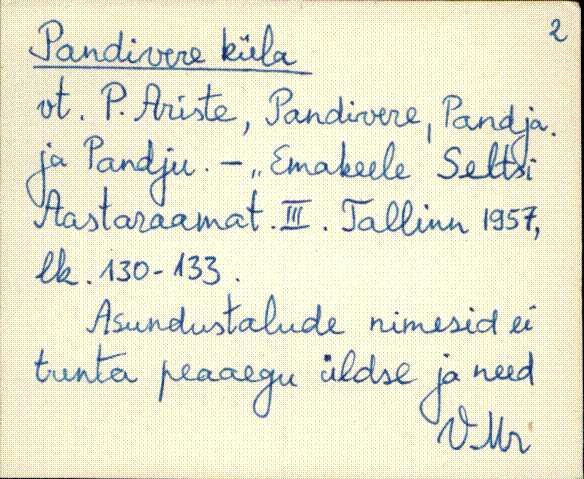 2
Pandivere küla
vt. P. Ariste, Pandivere, Pandja
ja Pandju. – „Emakeele Seltsi
Aastaraamat. III. Tallinn 1957,
lk. 130-133.
Asundustalude nimesid ei
tunta peaaegu üldse ja need
VMr